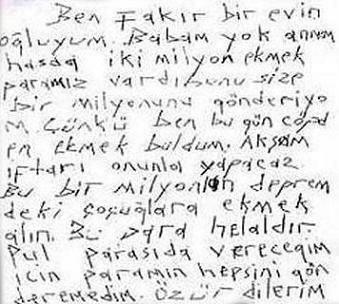 Ben Fakir bir evin
oğluyum. Babam yok annem
hasda iki milyon ekmek
paramız vardı bunu size
bir milyonunu gönderiyo
m. Çünkü ben bu gün cöpd
en ekmek buldum. Akşam
iftarı onunla yapacaz.
Bu bir milyonlan deprem
deki çoşuğlara ekmek
alın. Bu para helaldir.
Pul parasıda vereceğim
için paramın hepsini gön
deremedim. Özür dilerim